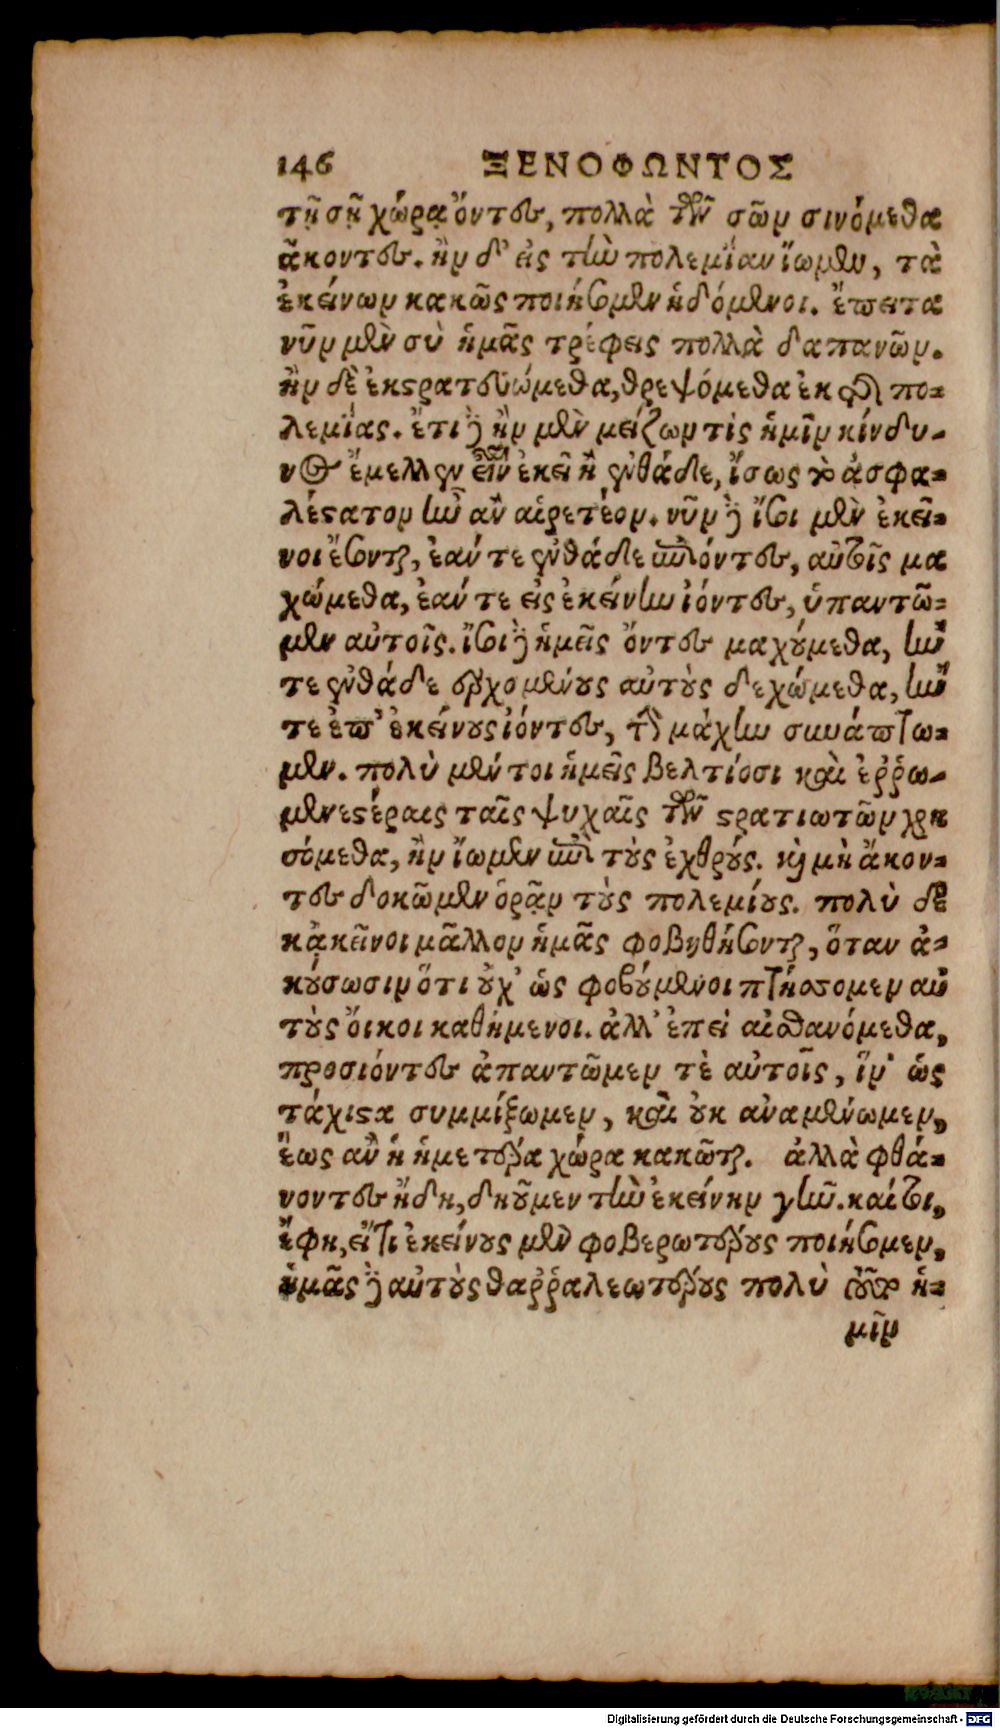 146 ΞΕΝΟΦΩΝΤΟΣ
τῇ σῇ χώρᾳ ὄντες, πολλὰ τῶν σῶν σινόμεθα
ἄκοντες. ἢν δ' εἰς τὴν πολεμίαν ἴωμεν, τὰ
ἐκείνων κακῶς ποιήσομεν ἡδόμενοι. ἔπειτα
νῦν μὲν σὺ ἡμᾶς τρέφεις πολλὰ δαπανῶν.
ἢν δὲ ἐκστρατευώμεθα, θρεψόμεθα ἐκ τῆς πο-
λεμίας. ἔτι δὲ ἢν μὲν μείζων τὶς ἡμῖν κίνδυ-
νος ἔμελλεν εἶναι ἐκεῖ ἢ ἐνθάδε, ἴσως τὸ ἀσφα-
λέστατον ἦν ἂν αἱρετέον. νῦν δὲ ἴσοι μὲν ἐκεῖ-
νοι ἔσονται, ἐάν τε ἐνθάδε ὑπομένοντες, αὐτοῖς μα
χώμεθα, ἐάν τε εἰς ἐκείνην ἰόντες, ὑπαντῶ-
μεν αὐτοῖς. ἴσοι δὲ ἡμεῖς ὄντες μαχούμεθα, ἤν
τε ἐνθάδε ἐρχομένους αὐτοὺς δεχώμεθα, ἤν
τε ἐπ' ἐκείνους ἰόντες, τὴν μάχην συνάπτω-
μεν. πολὺ μέντοι ἡμεῖς βελτίοσι καὶ ἐῤῥω-
μενεστέραις ταῖς ψυχαῖς τῶν στρατιωτῶν χρη
σόμεθα, ἢν ἴωμεν ἐπὶ τοὺς ἐχθρούς. καὶ μὴ ἄκον-
τες δοκῶμεν ὁρᾷν τοὺς πολεμίους. πολὺ δὲ
κᾀκεῖνοι μᾶλλον ἡμᾶς φοβηθήσονται, ὅταν ἀ-
κούσωσιν ὅτι οὐχ' ὡς φοβούμενοι πτήσσομεν αὐ
τοὺς ὄικοι καθήμενοι. ἀλλ' ἐπεὶ αἰσθανόμεθα,
προσιόντες ἀπαντῶμεν τὲ αὐτοῖς, ἵν' ὡς
τάχιστα συμμίξωμεν, καὶ οὐκ ἀναμένωμεν,
ἕως ἂν ἡ ἡμετέρα χώρα κακῶται. ἀλλὰ φθά-
νοντες ἤδη, δῃοῦμεν τὴν ἐκείνην γῆν. καίτοι,
ἔφη, εἴ τι ἐκείνους μὲν φοβερωτέρους ποιήσομεν,
ἡμᾶς δὲ αὐτοὺς θαῤῥαλεωτέρους πολὺ τοῦτο ἡ-
μῖν
Digitalisierung gefördert durch die Deutsche Forschungsgemeinschaft - DFG